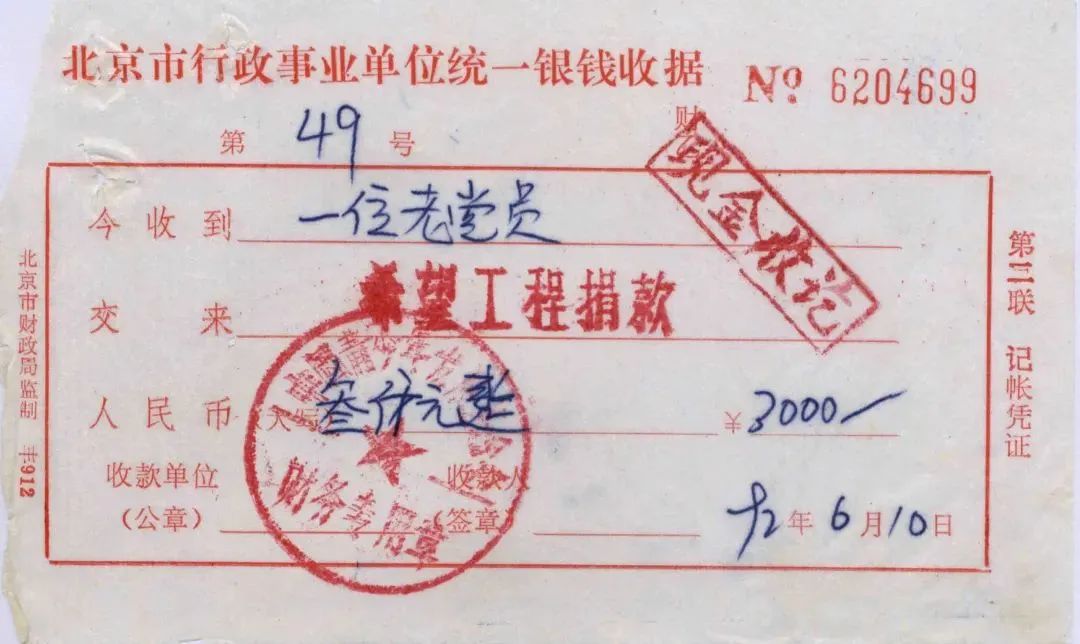 北京市行政事业单位统一银钱收据 № 6204699
财
第 49 号
现金收讫
今收到 一位老党员
交来 希望工程捐款
人民币 (大写) 叁仟元整 ¥3000—
收款单位 收款人
(公章) (签章) 92年6月10日
财务专用章
第三联 记帐凭证
北京市财政局监制 丰912